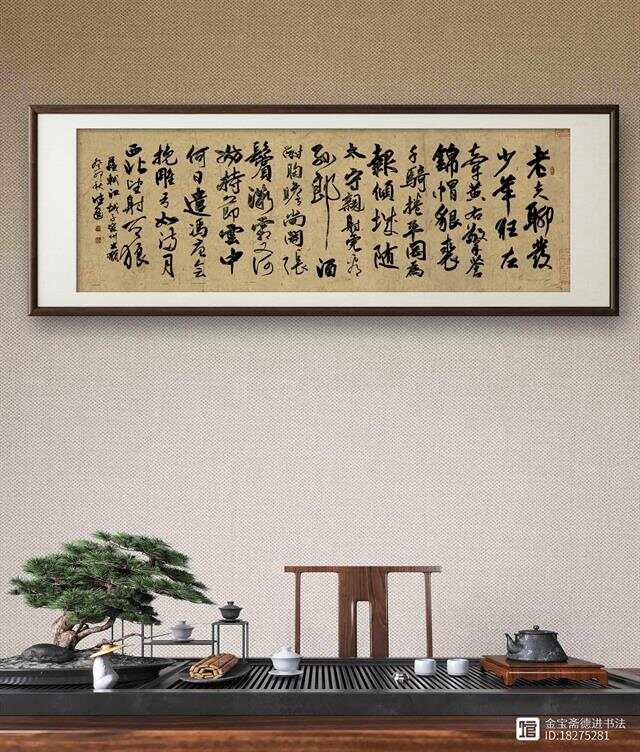 老夫聊發
少年狂左
牽黄右擎蒼
錦帽貂裘
千騎捲平岡為
報傾城隨
太守親射虎看
孫郎酒
酣胸膽尚開張
鬢微霜又何
妨持節雲中
何日遣馮唐會
挽雕弓如滿月
西北望射天狼
蘇軾江城子密州出獵
癸卯秋德進
金宝斋德进书法
ID:18275281